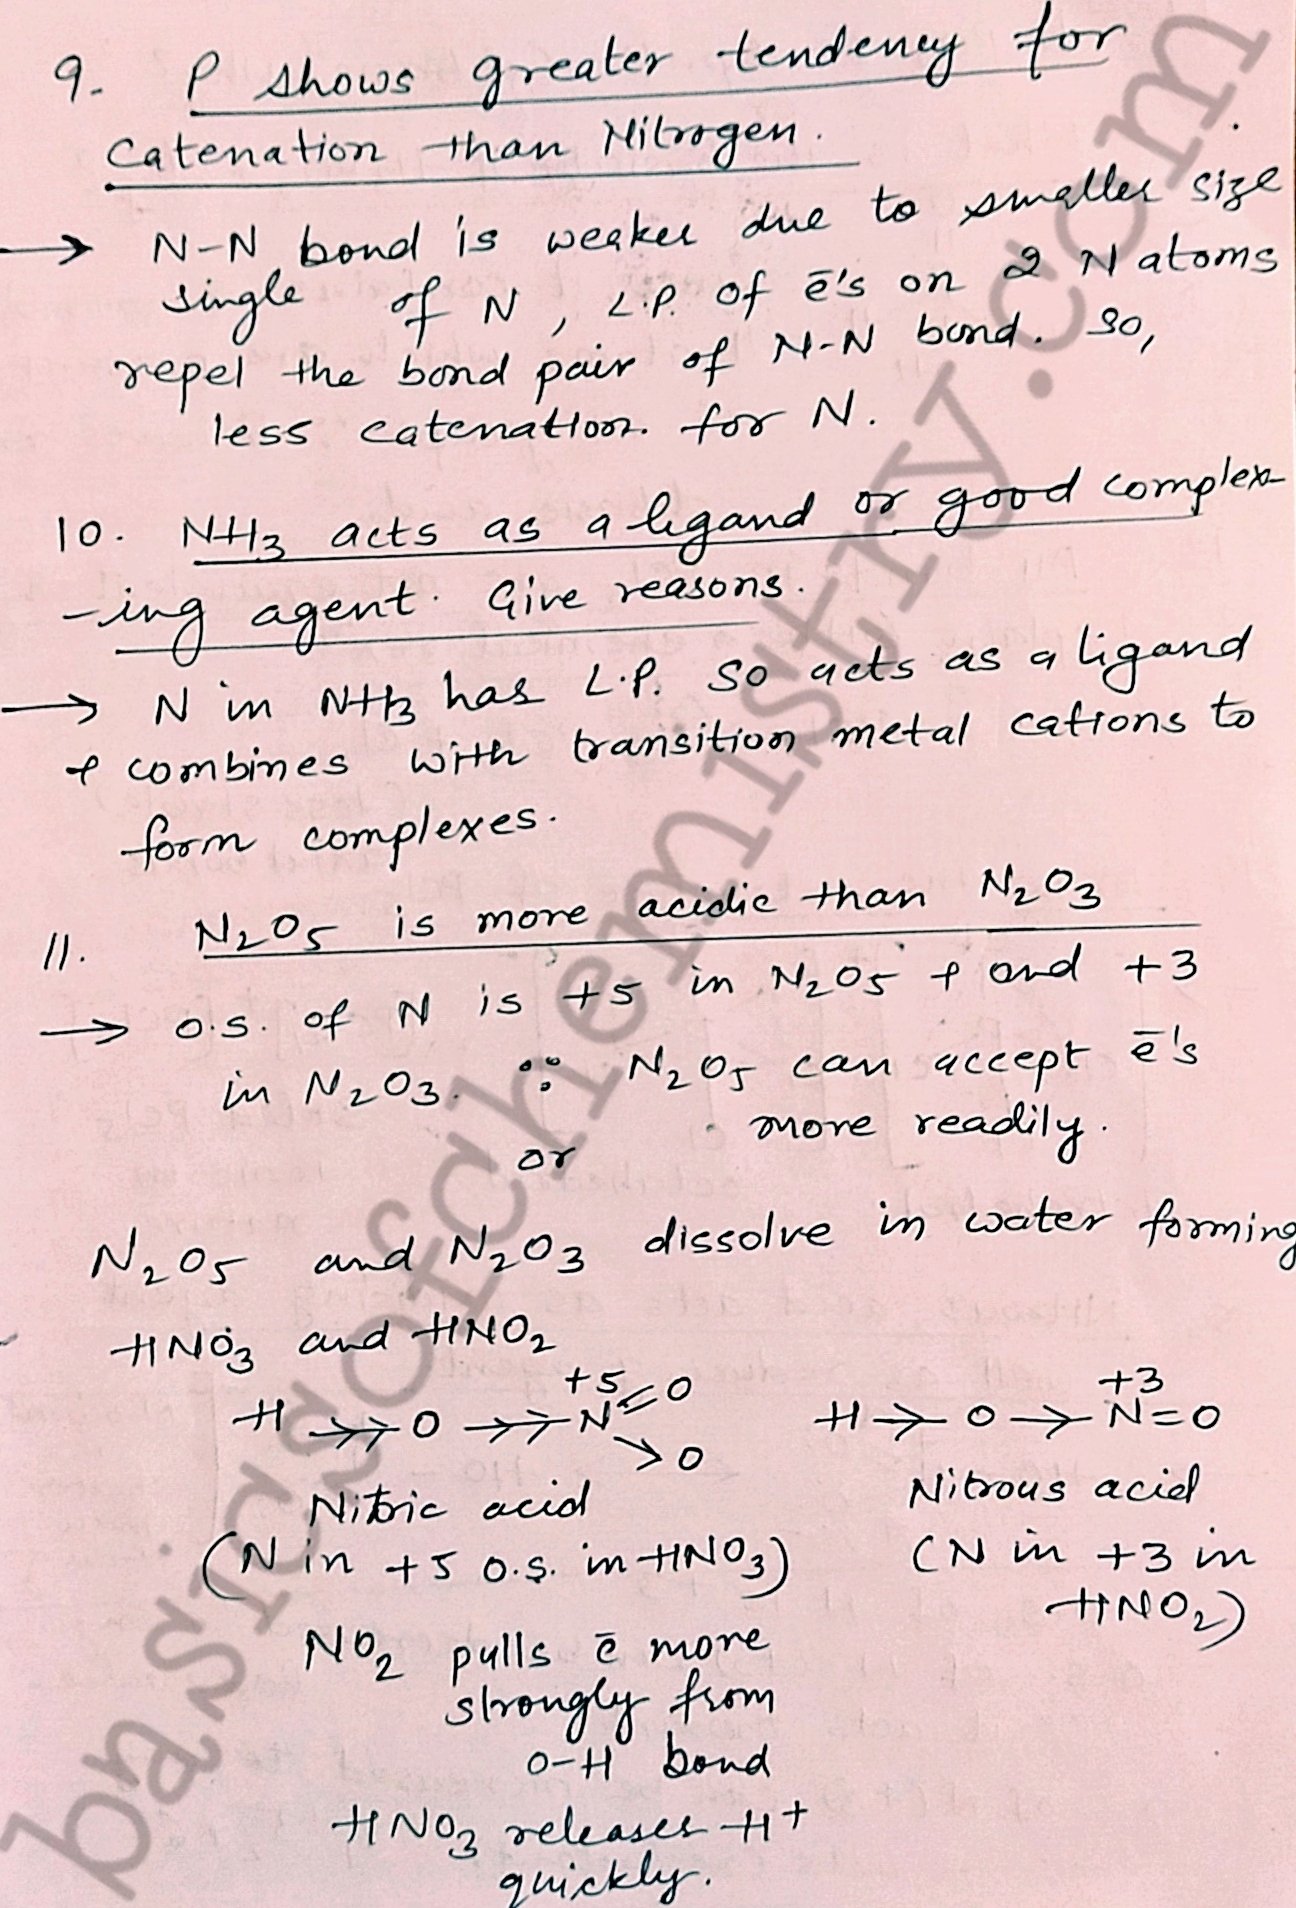 9. P shows greater tendency for
Catenation than Nitrogen.
→ N-N bond is weaker due to smaller size
single of N, L.P. of ē's on 2 N atoms
repel the bond pair of N-N bond. So,
less catenation for N.
10. NH3 acts as a ligand or good complex-
-ing agent. Give reasons.
→ N in NH3 has L.P. so acts as a ligand
& combines with transition metal cations to
form complexes.
11. N2O5 is more acidic than N2O3
→ O.S. of N is +5 in N2O5 & and +3
in N2O3. ∵ N2O5 can accept ē's
more readily.
or
N2O5 and N2O3 dissolve in water forming
HNO3 and HNO2
+5 +3
H →→ O →→ N = O H → O → N = O
→ O
Nitric acid Nitrous acid
(N in +5 O.S. in HNO3) (N in +3 in
HNO2)
NO2 pulls ē more
strongly from
O-H bond
HNO3 releases H+
quickly.
basicsofchemistry.com